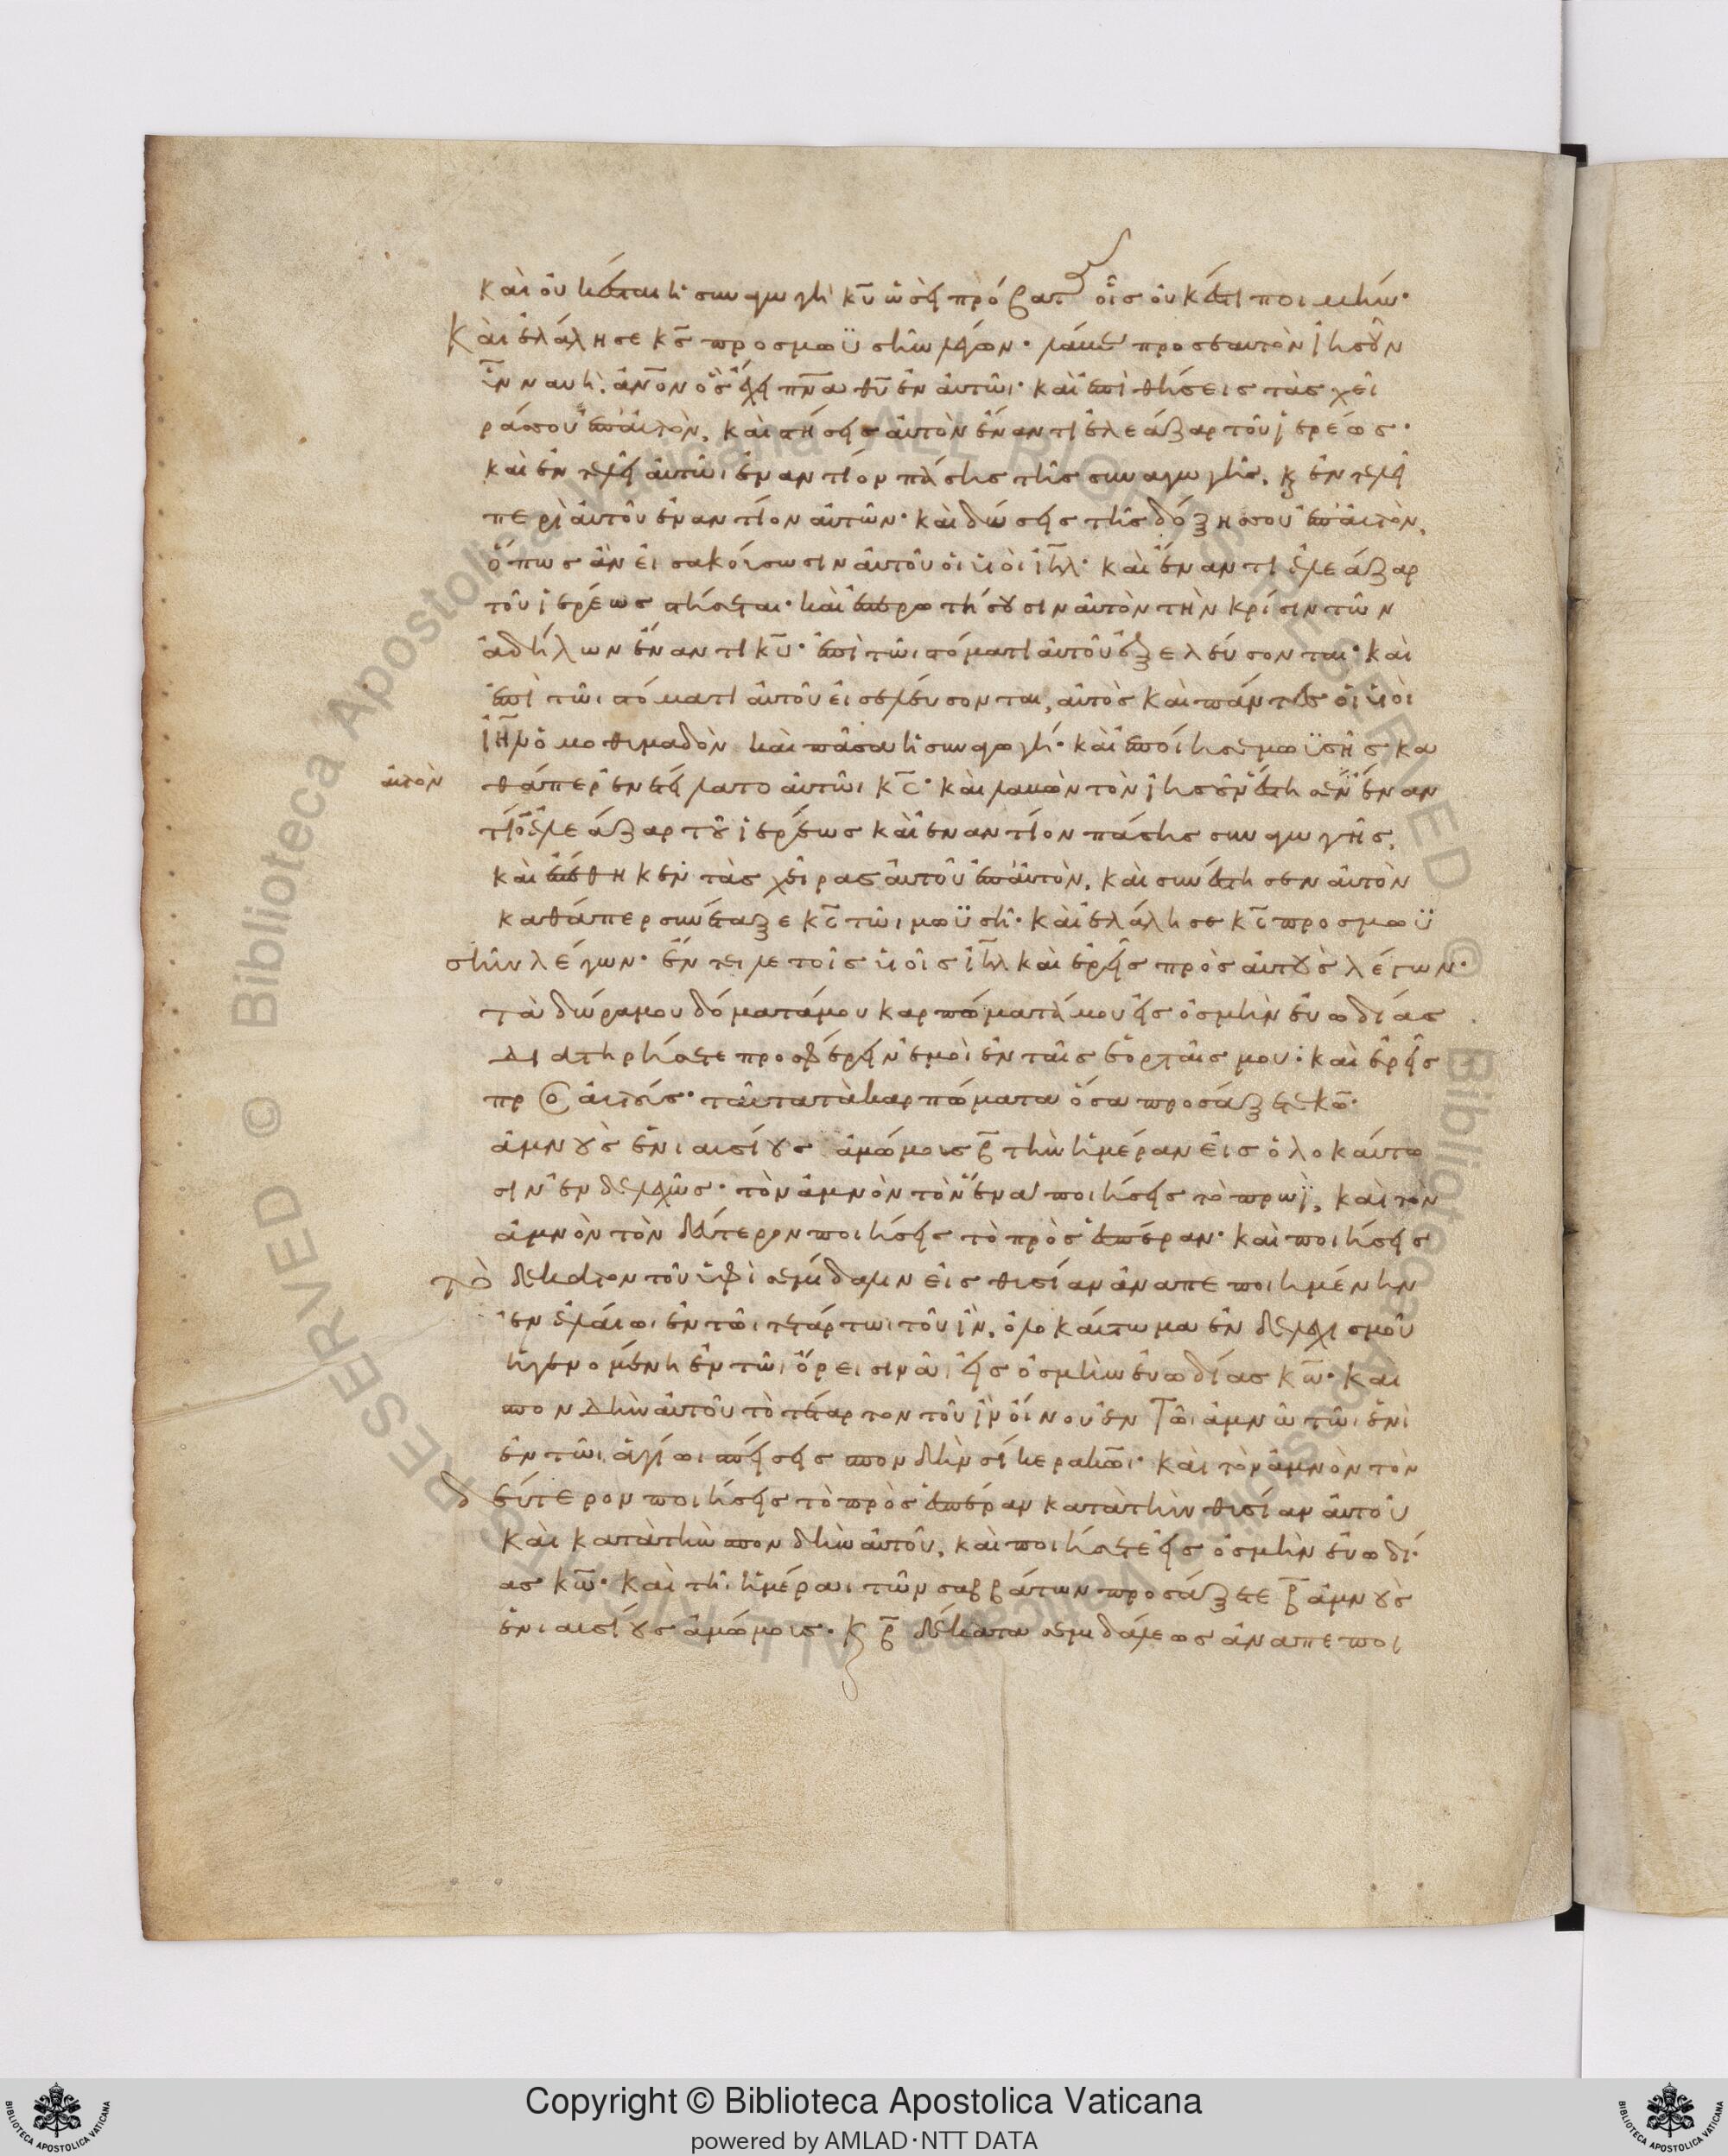 καὶ οὐκ ἔσται ἡ συναγωγὴ κ̅υ̅ ὡσεὶ πρόβατ οἷς οὐκ ἔστι ποιμήν·
Καὶ ἐλάλησε κ̅ς̅ προς μωϋσῆν λέγων· λάβε προς εαυτὸν ἰησοῦν
υ̅ν̅ ναυῆ. ἄν̅ο̅ν ὃς ἔχει π̅ν̅α̅ θ̅υ̅ ἐν ἀυτῶι· καὶ ἐπιθήσεις τὰς χεῖ
ράς σου ἐπ αὐτὸν, καὶ στήσεις ἀυτὸν ἔναντι ἐλεάζαρ τοῦ ἱερέως·
καὶ ἐντελεῖ ἀυτῶι ἐναντίον πάσης τῆς συναγωγῆς, κ̀ ἐντελεῖ
περὶ ἀυτοῦ ἐναντίον ἀυτῶν· καὶ δώσεις τῆς δόξης σου ἐπ ἀυτὸν,
ὅπως ἂν εἰσακούσωσιν ἀυτοῦ οἱ υἱοὶ ι̅η̅λ̅· καὶ ἔναντι ἐλεάζαρ
τοῦ ἱερέως στήσεται· καὶ ἐπερωτήσουσιν ἀυτὸν τὴν κρίσιν τῶν
ἀδήλων ἔναντι κ̅υ̅· ἐπὶ τῶι στόματι ἀυτοῦ ἐξελεύσονται· καὶ
ἐπὶ τῶι στόματι ἀυτοῦ εἰσελεύσονται, ἀυτὸς καὶ πάντες οἱ υἱοὶ
ι̅η̅λ̅ ὁμοθυμαδὸν καὶ πᾶσα ἡ συναγωγή· καὶ ἐποίησε μωϋσῆς κα
ἀυτὸν θάπερ ἐνετείλατο ἀυτῶι κ̅ς̅· καὶ λαβὼν τὸν ἰησοῦν ἔστησεν ἐναν
τίον ἐλεάζαρ τοῦ ἱερέως καὶ ἐναντίον πάσης συναγωγῆς,
καὶ ἐπέθηκεν τὰς χεῖρας ἀυτοῦ ἐπ ἀυτὸν, καὶ συνέστησεν ἀυτὸν
καθάπερ συνέταξε κ̅ς̅ τῶι μωϋσῆ· καὶ ἐλάλησε κ̅ς̅ προς μωϋ
σῆν λέγων· ἔντειλε τοῖς υἱοῖς ι̅η̅λ̅ καὶ ἐρεῖς πρὸς ἀυτοὺς λέγων·
τὰ δῶρά μου δόματά μου καρπώματά μου εἰς ὀσμὴν ἐυωδίας
διατηρήσετε προσφέρειν ἐμοὶ ἐν ταῖς ἑορταῖς μου· καὶ ἐρεῖς
προς ἀυτούς· ταῦτα τὰ καρπώματα ὅσα προσάξετε κ̅ω̅·
ἀμνοὺς ἐνιαυσίους ἀμώμους β̅ τὴν ἡμέραν εἰς ὁλοκαύτω
σιν ἐνδελεχῶς· τὸν ἀμνὸν τὸν ἕνα ποιήσεις τὸ πρωῒ, καὶ τὸν
ἀμνὸν τὸν δεύτερον ποιήσεις τὸ πρὸς ἑσπέραν· καὶ ποιήσεις
τὸ δέκατον τοῦ ὑφὶ σεμίδαλιν εἰς θυσίαν ἀναπεποιημένην
ἐν ἐλαίωι ἐν τῶι τετάρτωι τοῦ ἲν, ὁλοκαύτωμα ἐνδελεχισμοῦ
ἡ γενομένη ἐν τῶι ὄρει σινᾶ εἰς ὀσμὴν ἐυωδίας κ̅ω̅· καὶ
σπονδὴν ἀυτοῦ τὸ τέταρτον τοῦ ἲν οἴνου ἐν τῶι ἀμνῶ τῶι ἑνὶ
ἐν τῶι ἁγίωι σπείσεις σπονδὴν σίκερα κ̅ω̅ι· καὶ τὸν ἀμνὸν τὸν
δεύτερον ποιήσεις τὸ πρὸς ἑσπέραν κατὰ τὴν θυσίαν ἀυτοῦ
καὶ κατὰ τὴν σπονδὴν ἀυτοῦ, καὶ ποιήσετε εἰς ὀσμὴν ἐυωδί
ας κ̅ω̅· καὶ τῆ ἡμέραι τῶν σαββάτων προσάξετε β̅ ἀμνοὺς
ἐνιαυσίους ἀμώμους· κ̀ β̅ δέκατα σεμιδάλεως ἀναπεποι
Copyright © Biblioteca Apostolica Vaticana
powered by AMLAD·NTT DATA